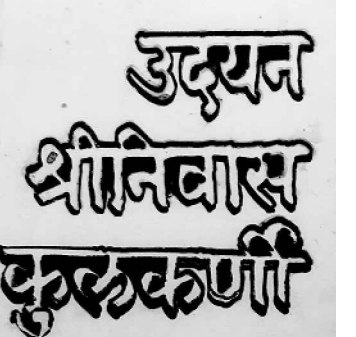 उदयन
श्रीनिवास
कुलकर्णी